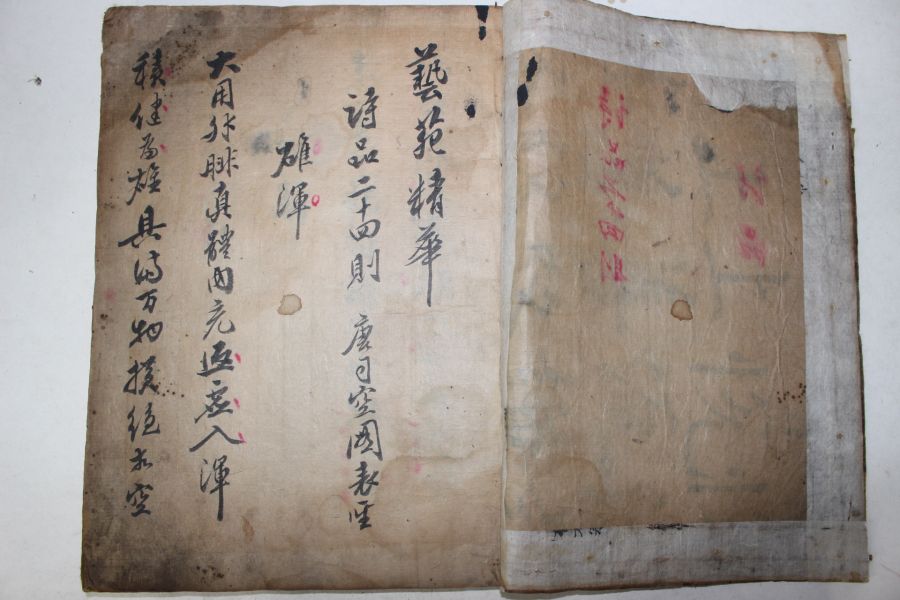 藝苑精華
詩品二十四則 唐司空圖表聖
雄渾
大用外腓真體內充返虛入渾
積健為雄具備万物橫絕太空